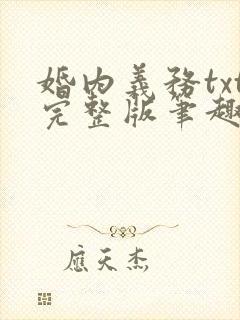 婚内義務txt
完整版筆趣
應天杰